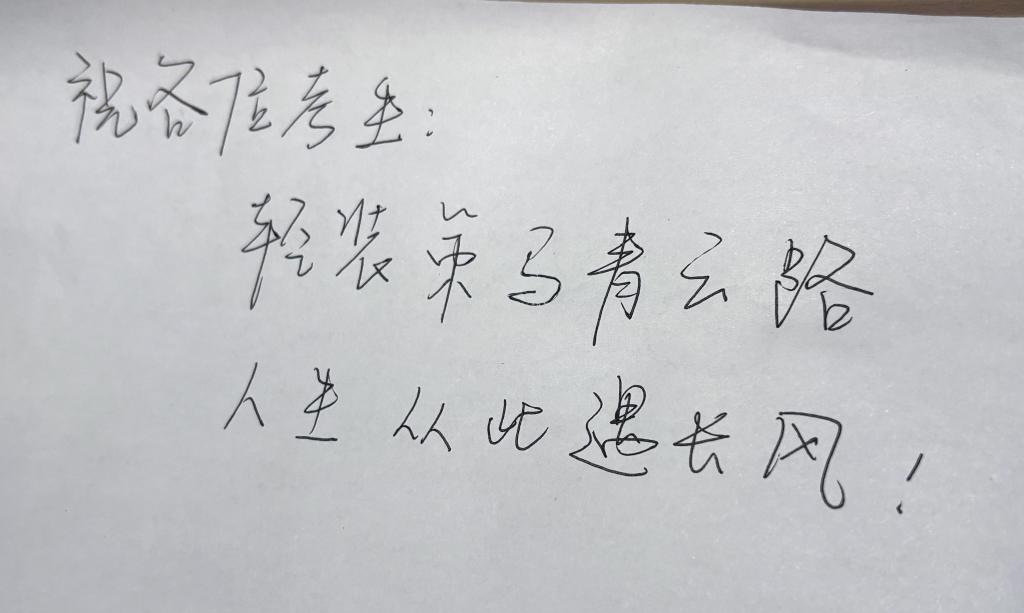 祝各位考生:
轻装策马青云路
人生从此遇长风!